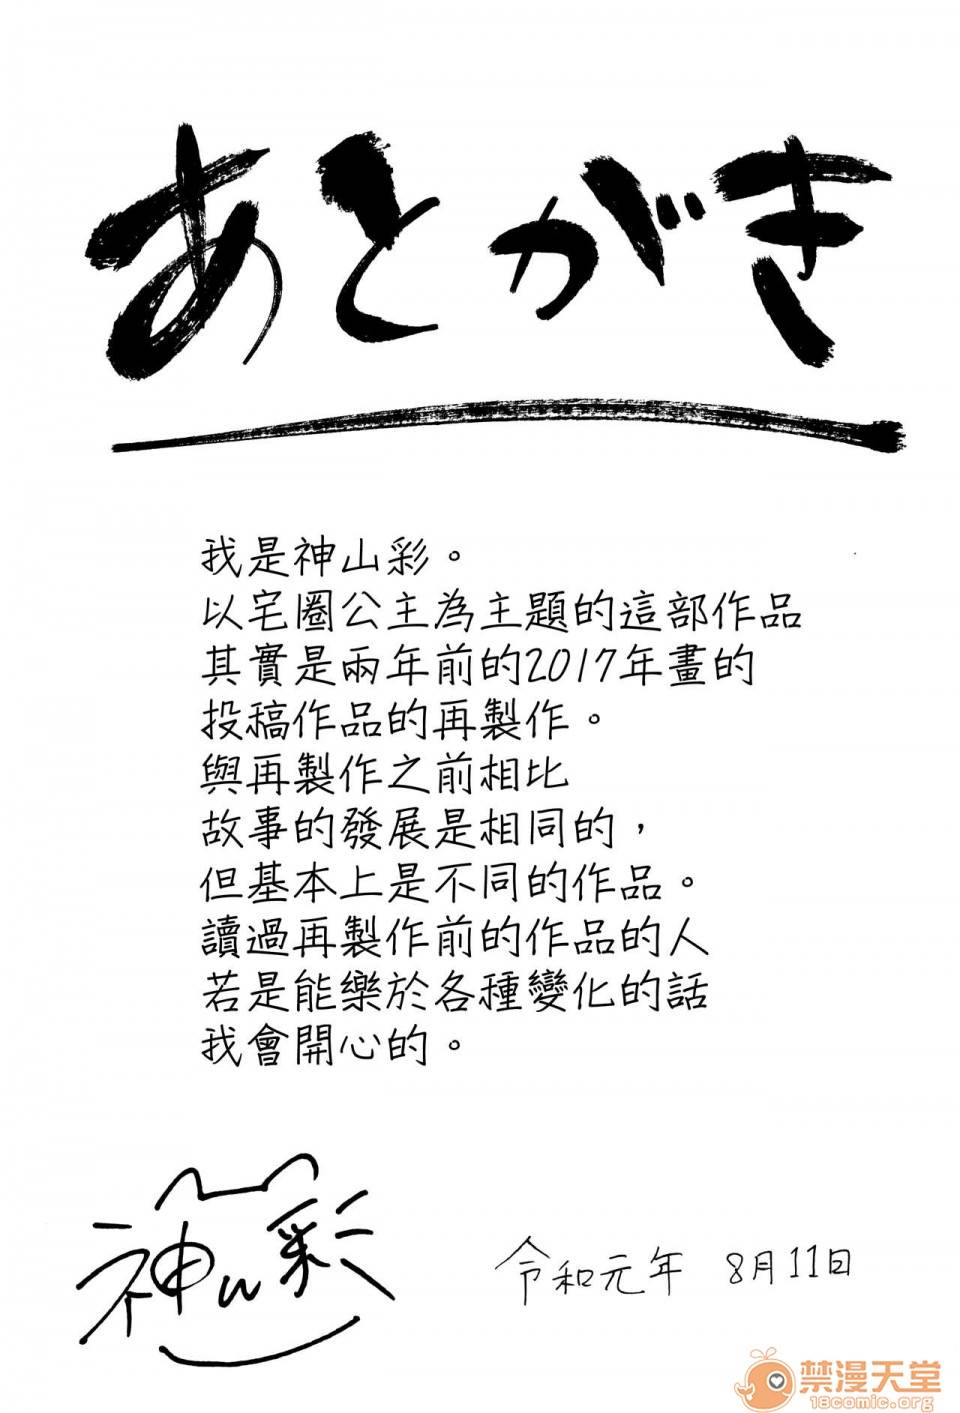 あとがき
我是神山彩。
以宅圈公主為主題的這部作品
其實是兩年前的2017年畫的
投稿作品的再製作。
與再製作之前相比
故事的發展是相同的，
但基本上是不同的作品。
讀過再製作前的作品的人
若是能樂於各種變化的話
我會開心的。
神山彩
令和元年 8月11日
禁漫天堂
18comic.org